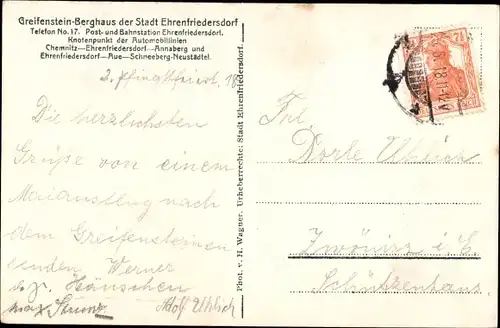 Greifenstein-Berghaus der Stadt Ehrenfriedersdorf
Telefon No. 17. Post- und Bahnstation Ehrenfriedersdorf.
Knotenpunkt der Automobillinien
Chemnitz—Ehrenfriedersdorf—Annaberg und
Ehrenfriedersdorf—Aue—Schneeberg-Neustädtel.
2. Pfingstfeiert. 18
Die herzlichsten
Grüße von einem
Maiausflug nach
dem Greifensteinen
senden Werner
Hänschen
Max Strunz Adolf Uhlich
Phot. v. H. Wagner. Urheberrechte: Stadt Ehrenfriedersdorf.
7½
Frl.
Dorle Uhlich
Zwönitz i. E.
Schützenhaus